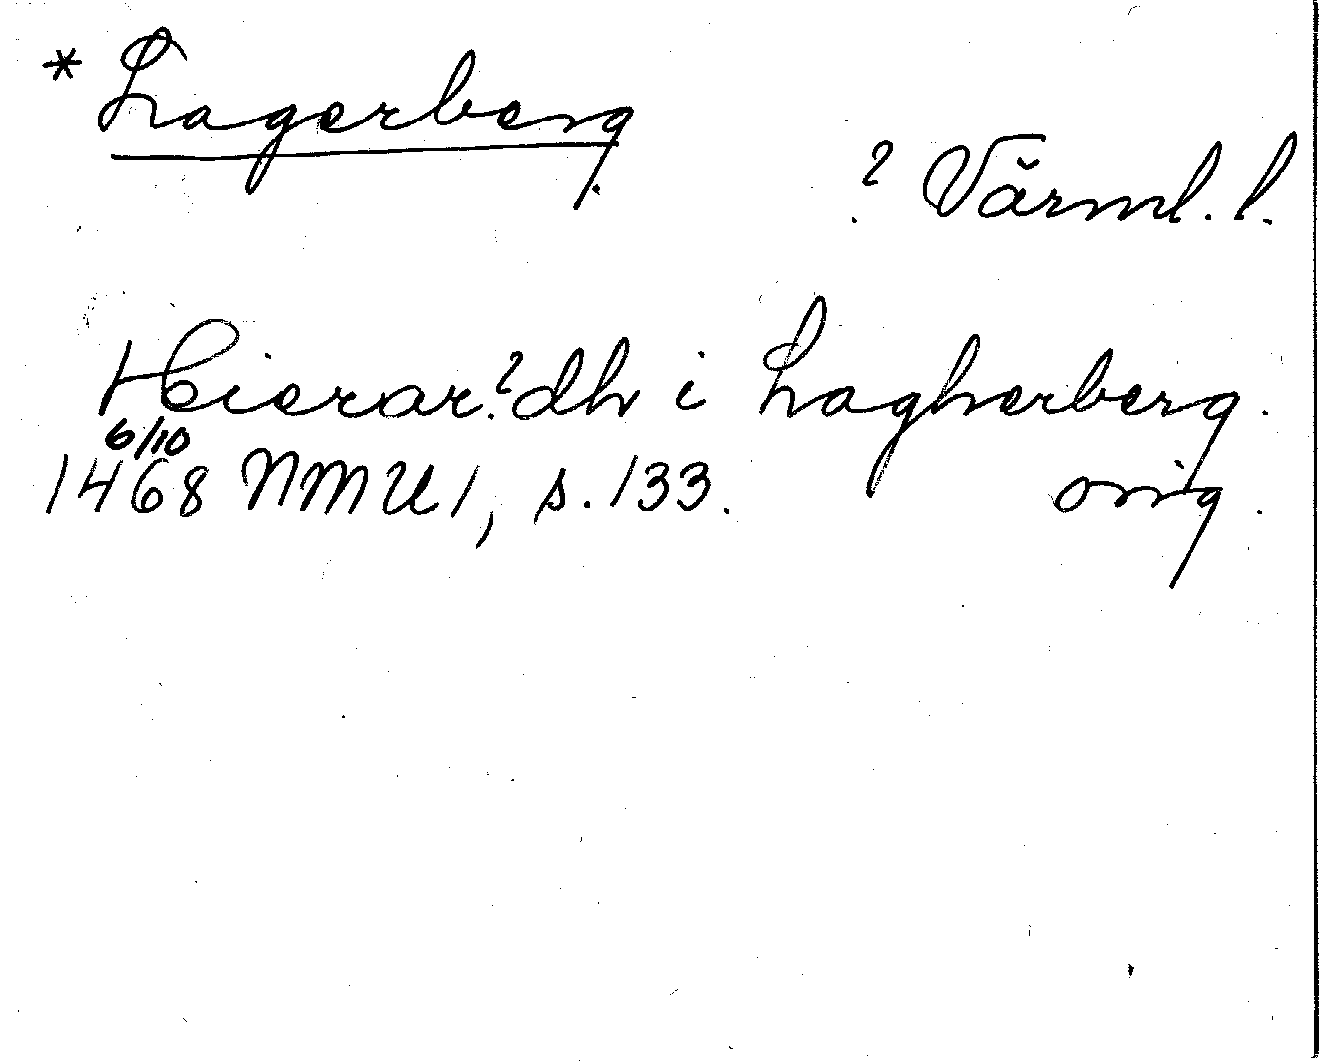 * Lagerberg.
? Värml. l.
Hierar?dh i Lagherberg.
6/10
1468 NMU 1, s. 133. orig.